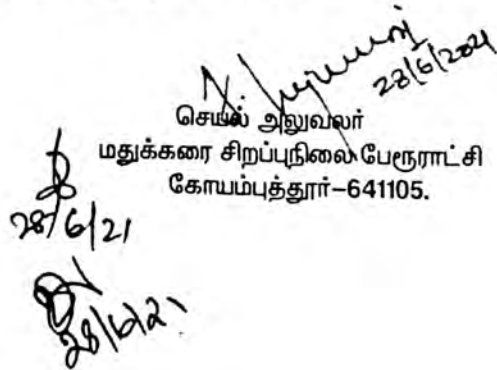 28/6/2021
செயல் அலுவலர்
மதுக்கரை சிறப்புநிலை பேரூராட்சி
கோயம்புத்தூர்-641105.
28/6/21
28/6/21